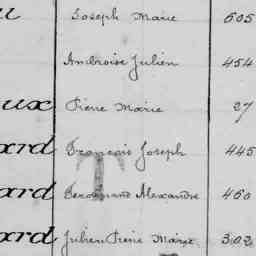 Joseph Marie 605
Ambroise Julien 454
aux Pierre Marie 27
ard François Joseph 445
ard Ferdinand Alexandre 460
ard Julien Pierre Marie 302